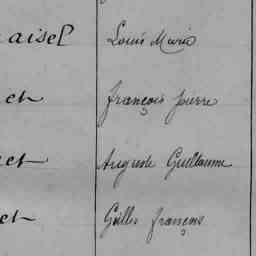 aisel Louis Marie
et François Pierre
et Auguste Guillaume
et Gilles François